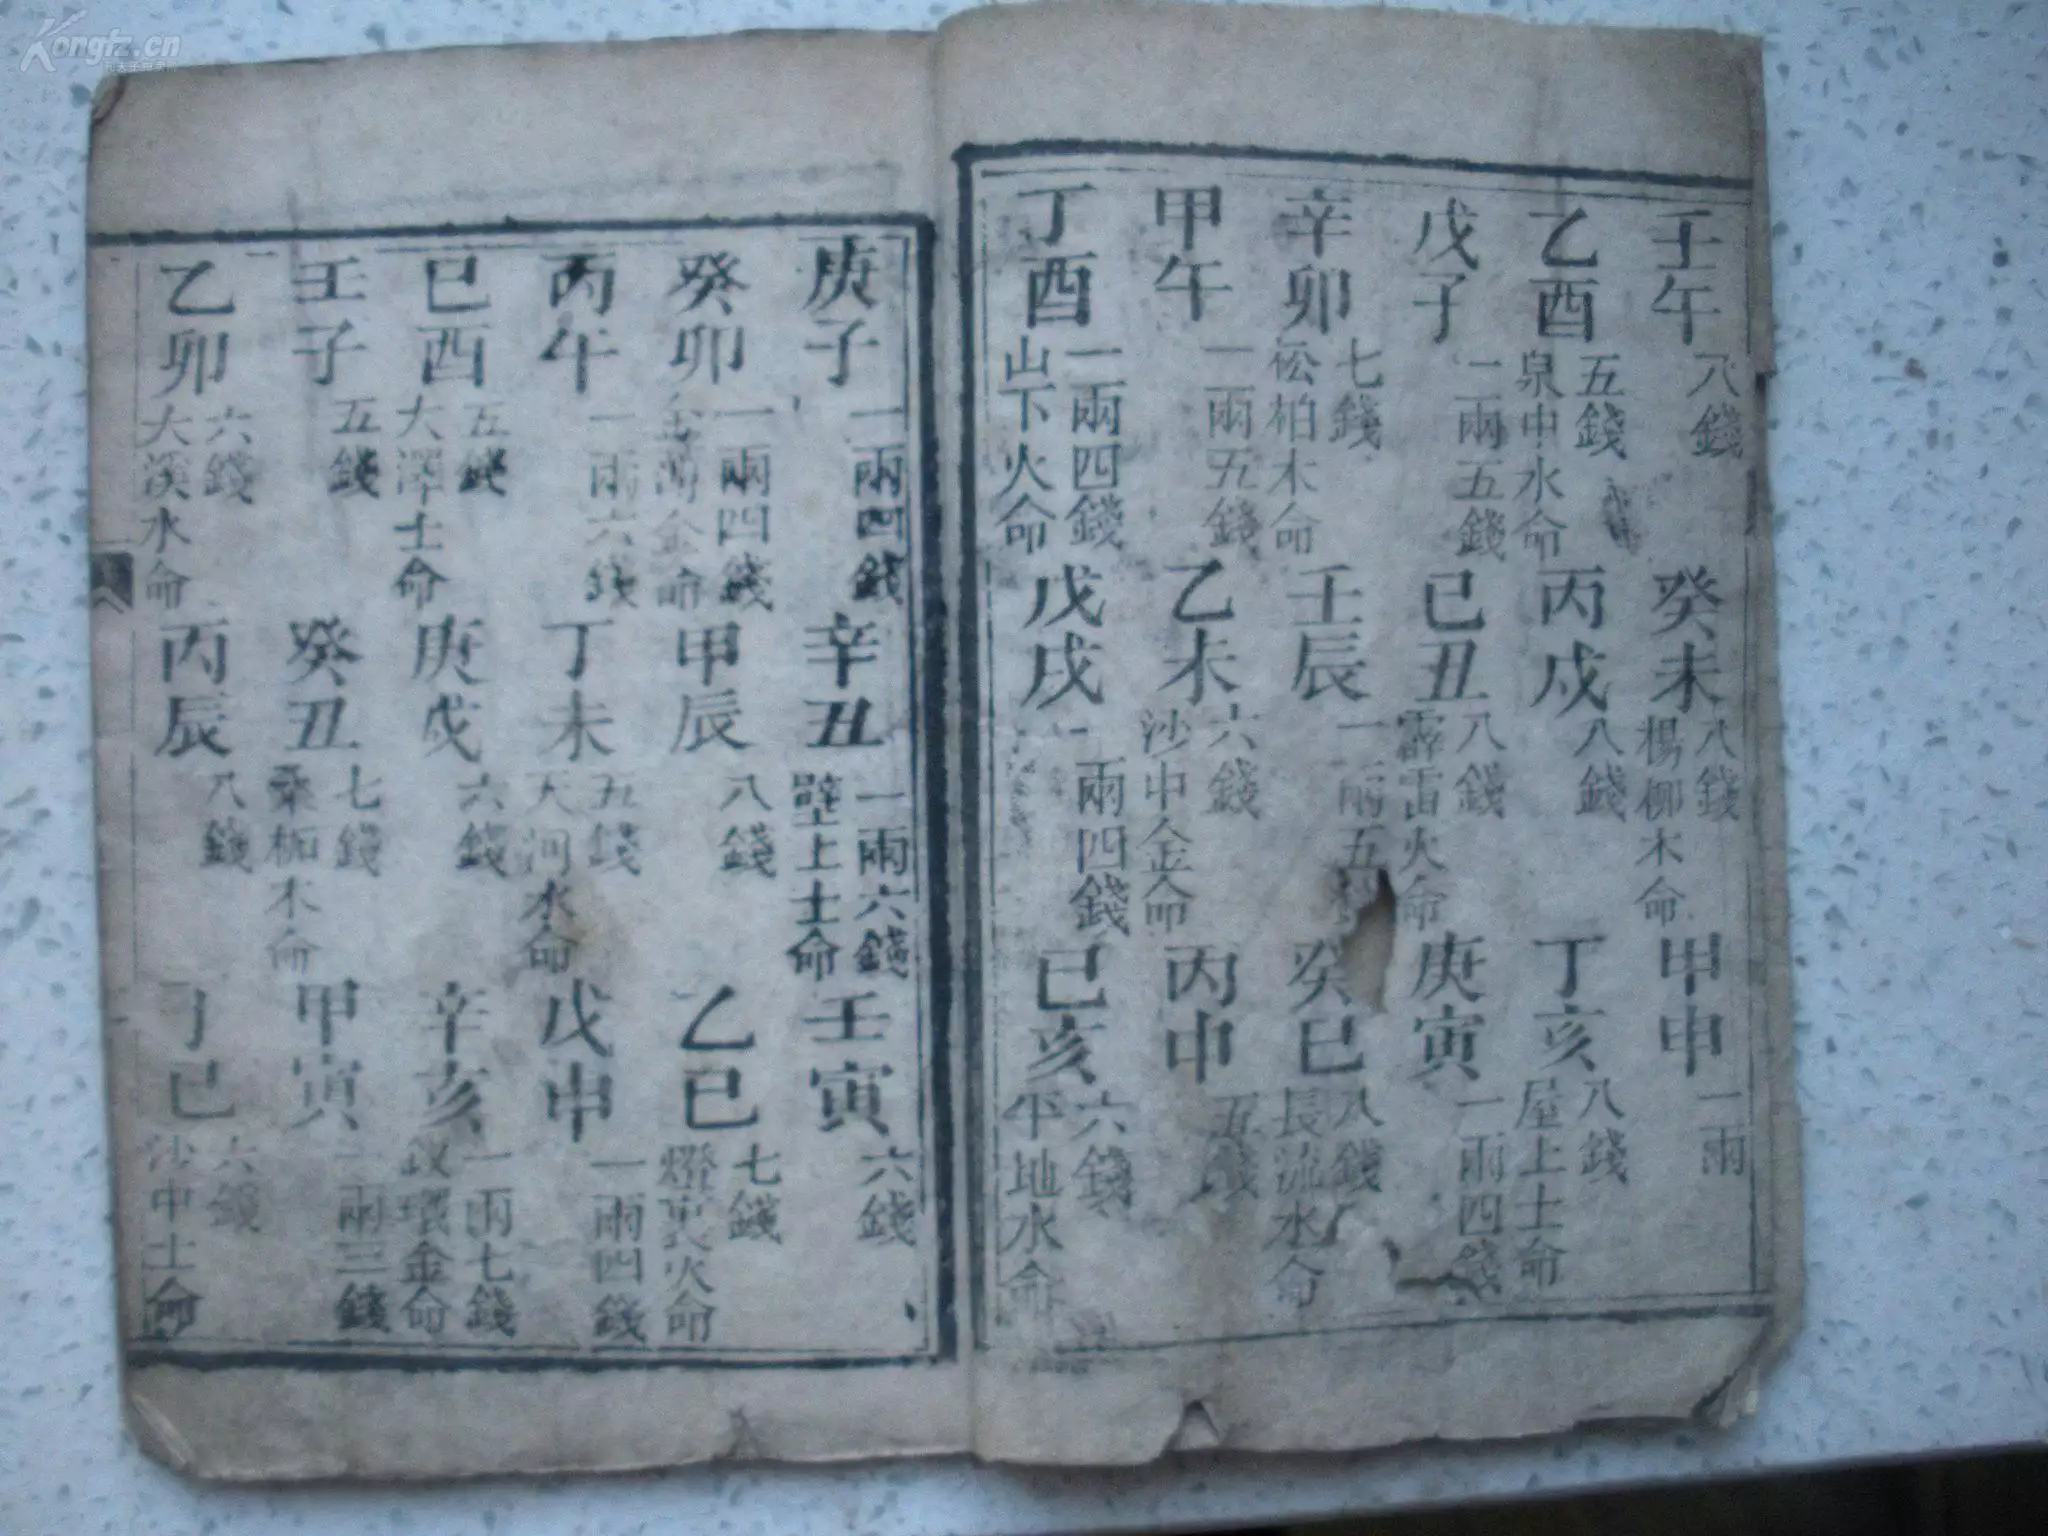 Kongfz.cn
壬午 八錢 癸未 八錢 楊柳木命 甲申 一兩
乙酉 五錢 泉中水命 丙戌 八錢 丁亥 八錢 屋上土命
戊子 一兩五錢 己丑 八錢 霹雷火命 庚寅 一兩四錢
辛卯 七錢 松柏木命 壬辰 一兩五 癸巳 八錢 長流水命
甲午 一兩五錢 乙未 六錢 沙中金命 丙申 五錢
丁酉 一兩四錢 山下火命 戊戌 一兩四錢 己亥 六錢 平地水命
庚子 一兩四錢 辛丑 一兩六錢 壁上土命 壬寅 六錢
癸卯 一兩四錢 金箔金命 甲辰 八錢 乙巳 七錢 燈火命
丙午 一兩六錢 丁未 五錢 天河水命 戊申 一兩四錢
己酉 五錢 大澤土命 庚戌 六錢 辛亥 一兩七錢 釵環金命
壬子 五錢 癸丑 七錢 桑柘木命 甲寅 一兩三錢
乙卯 六錢 大溪水命 丙辰 八錢 丁巳 六錢 沙中土命